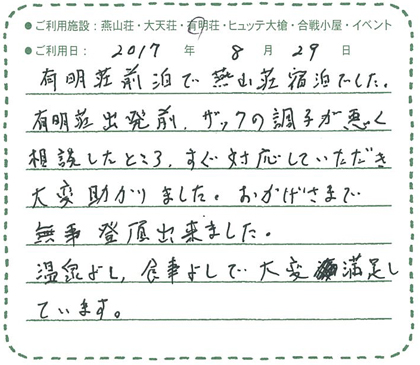 ●ご利用施設：燕山荘・大天荘・有明荘・ヒュッテ大槍・合戦小屋・イベント
●ご利用日： 2017 年 8 月 29 日
有明荘前泊で燕山荘宿泊でした。
有明荘出発前、ザックの調子が悪く
相談したところ、すぐ対応していただき
大変助かりました。おかげさまで
無事登頂出来ました。
温泉よし、食事よしで大変満足し
ています。